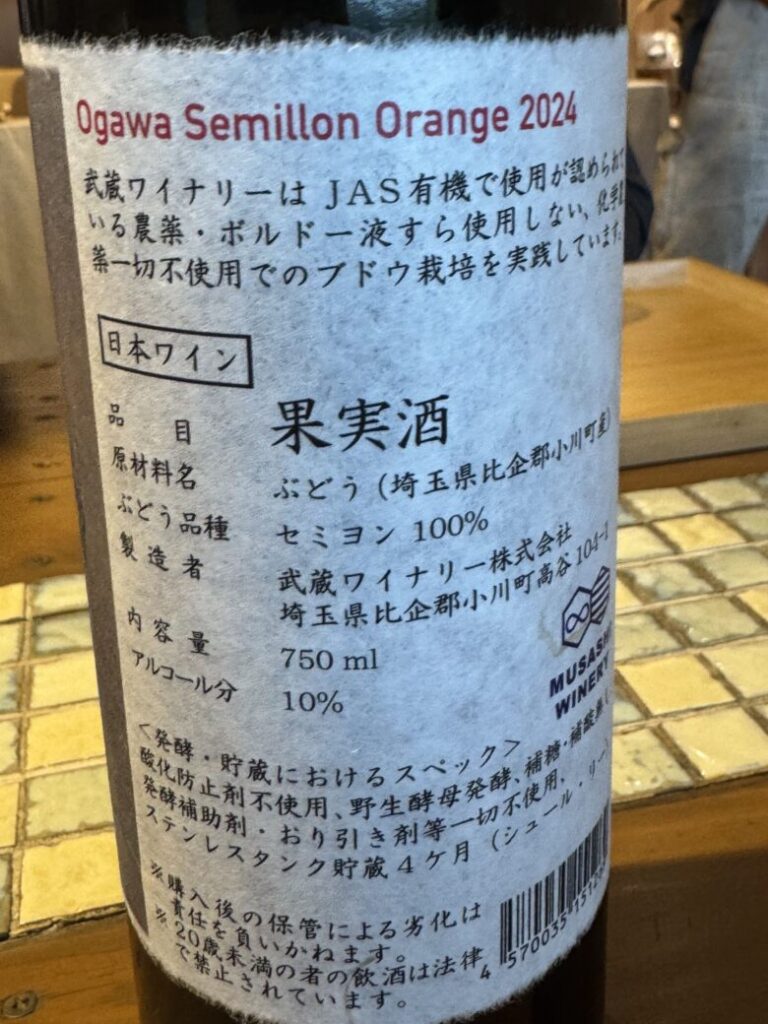 Ogawa Semillon Orange 2024
武蔵ワイナリーは JAS有機で使用が認められて
いる農薬・ボルドー液すら使用しない、化学農
薬一切不使用でのブドウ栽培を実践しています。
日本ワイン
品目 果実酒
原材料名 ぶどう (埼玉県比企郡小川町産)
ぶどう品種 セミヨン 100%
製造者 武蔵ワイナリー株式会社
埼玉県比企郡小川町高谷 104-1
内容量 750 ml
アルコール分 10%
MUSASHI
WINERY
<発酵・貯蔵におけるスペック>
酸化防止剤不使用、野生酵母発酵、補糖・補酸無し
発酵補助剤・おり引き剤等一切不使用、
ステンレスタンク貯蔵 4ケ月 (シュール・リー)
※購入後の保管による劣化は
責任を負いかねます。
※20歳未満の者の飲酒は法律
で禁止されています。
4 570035